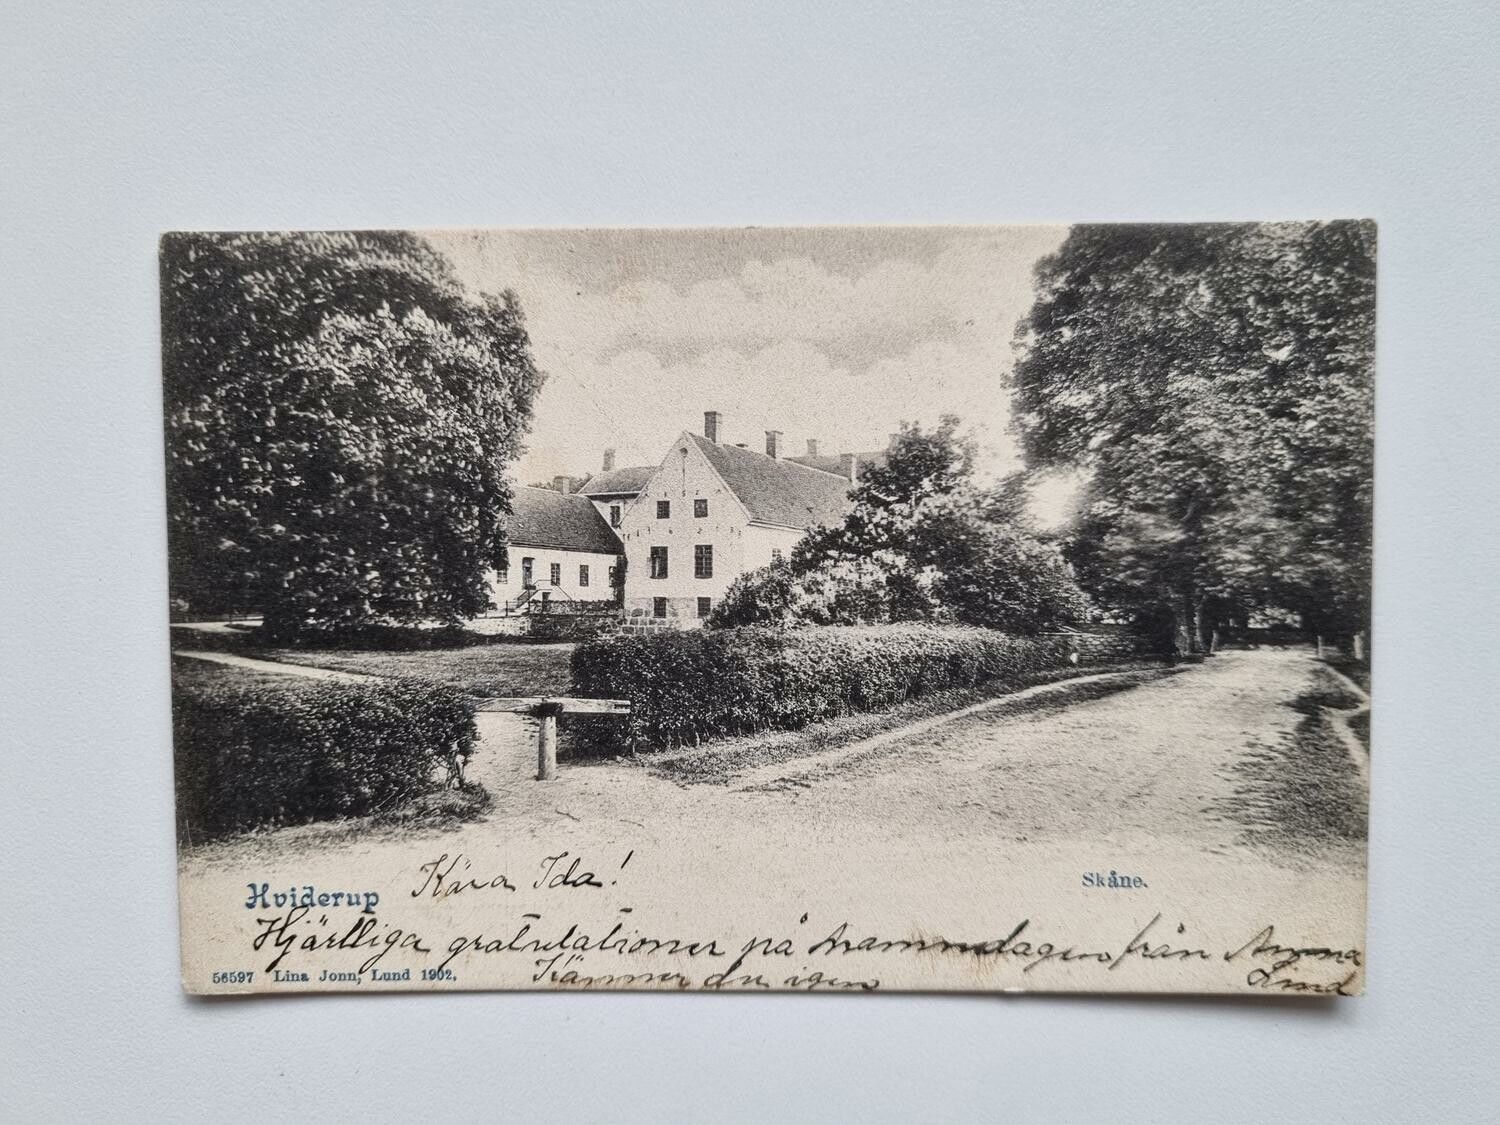 Kära Ida!
Hviderup
Skåne.
Hjärtliga gratulationer på namnsdagen från Anna
Lind
56597 Lina Jonn, Lund 1902.
Känner du igen